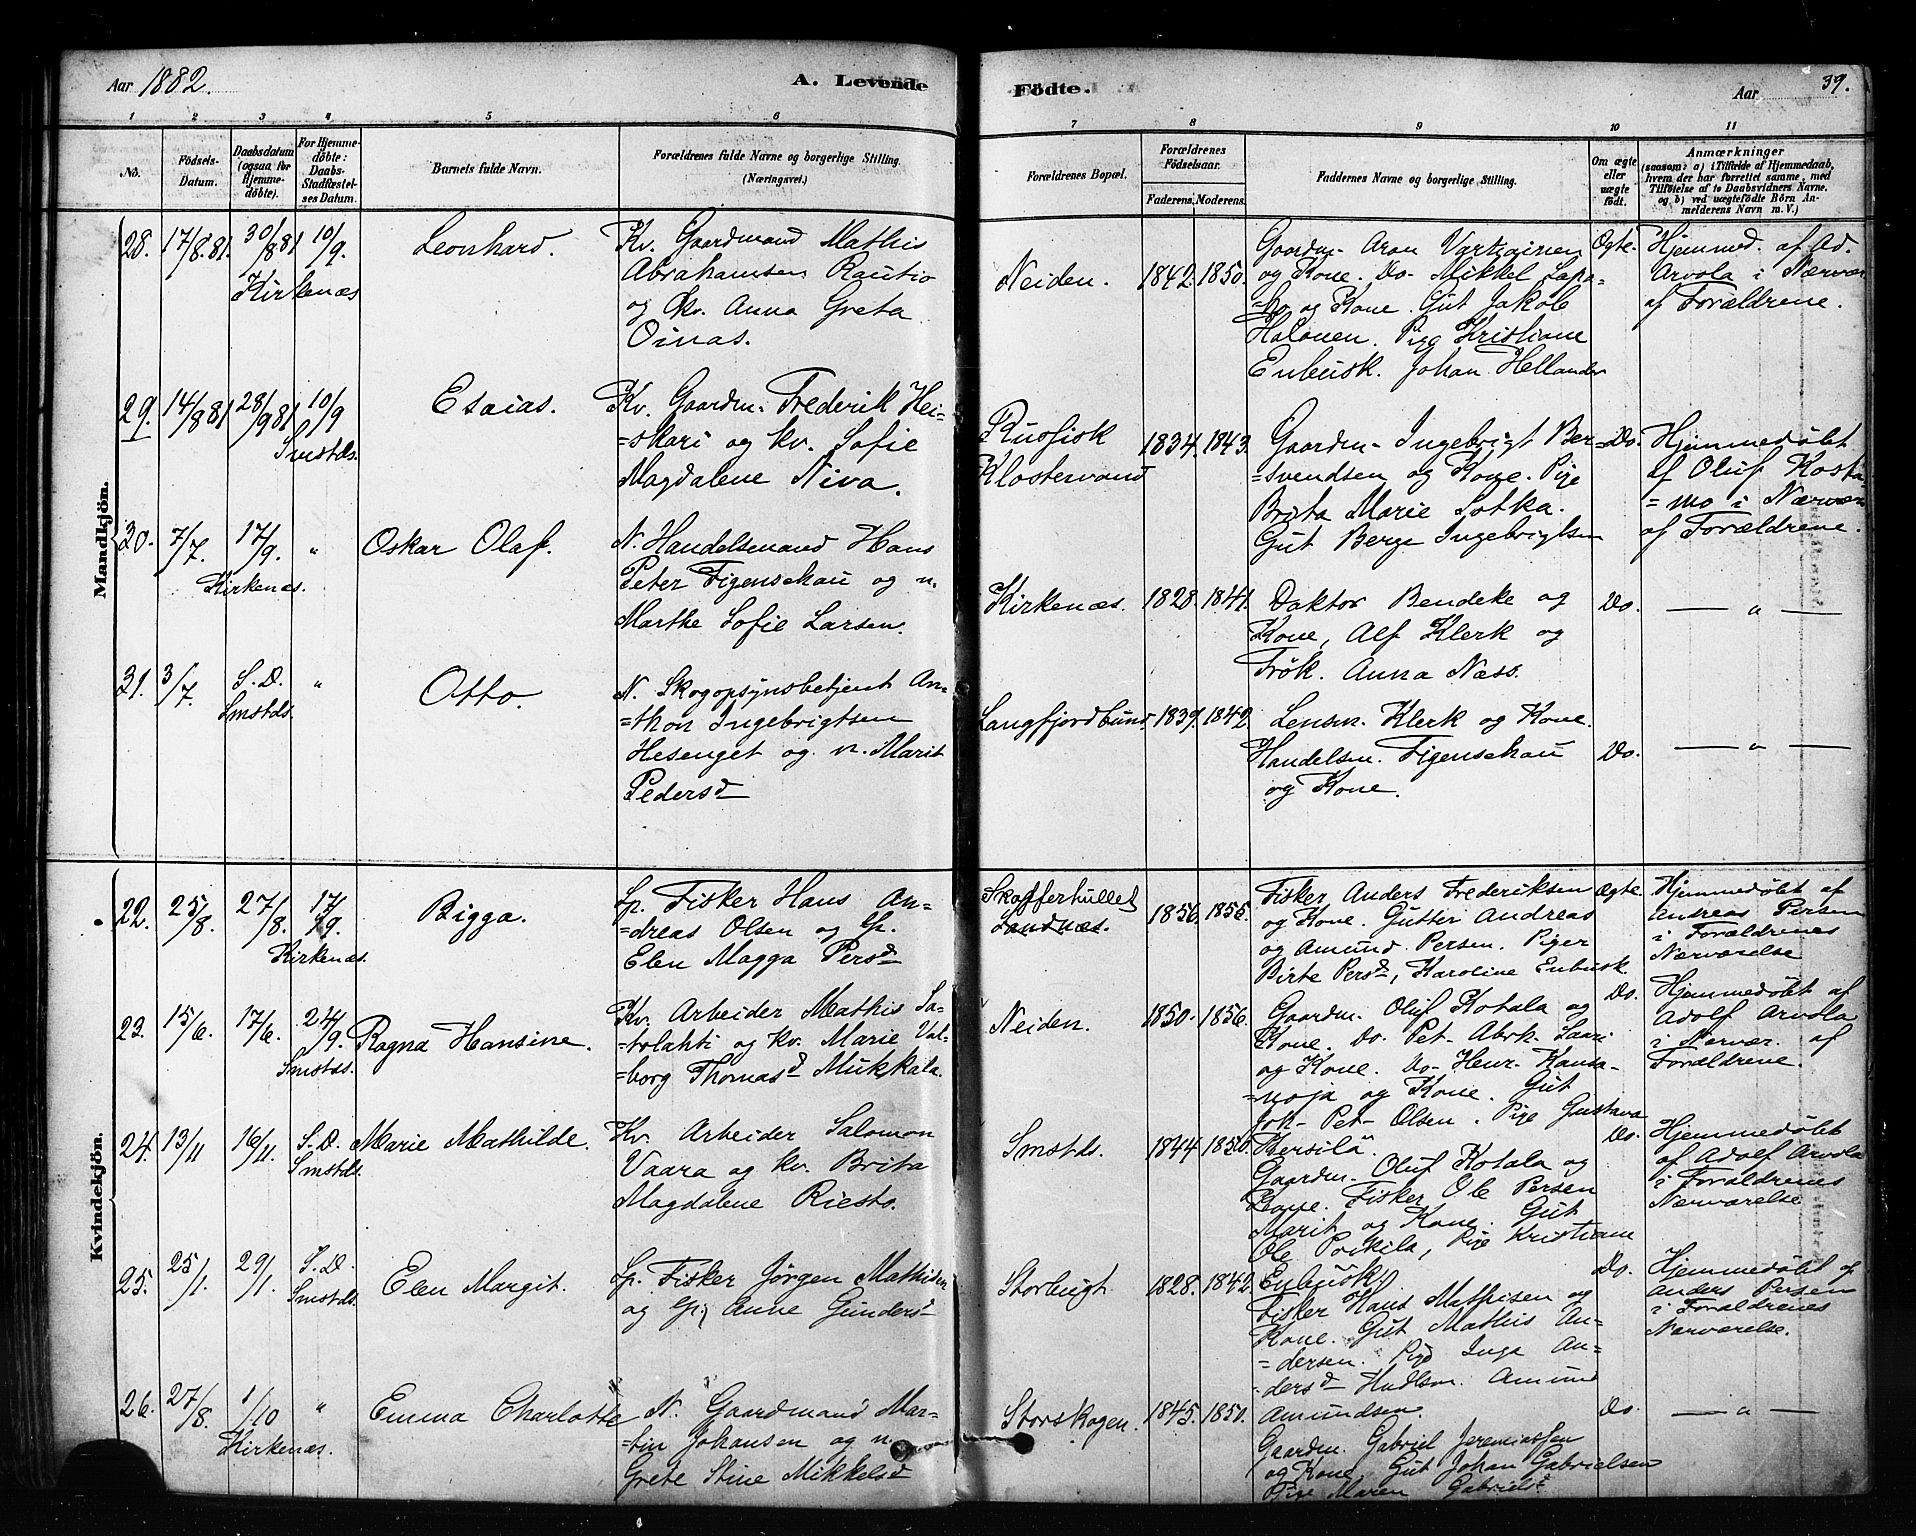 Aar 1882.
A. Levende
Födte.
Aar
39.
1 2 3 4 5 6
7 8 9 10 11
No.
Födsels-
Datum.
Daabsdatum
(ogsaa for
Hjemme-
döbte).
For Hjemme-
döbte:
Daabs-
Stadfæstel-
ses Datum.
Barnets fulde Navn.
Forældrenes fulde Navne og borgerlige Stilling.
(Næringsvei.)
Forældrenes Bopæl.
Forældrenes
Födselsaar.
Faderens. Moderens.
Faddernes Navne og borgerlige Stilling.
Om ægte
eller
uægte
födt.
Anmærkninger
(saasom: a) i Tilfælde af Hjemmedaab,
hvem der har forrettet samme, med
Tilföielse af to Daabsvidners Navne.
og b) ved uægtefödte Börn An-
melderens Navn m. V.)
Mandkjön.
28. 17/8.81. 30/8 81 10/9.
Kirkenæs
Leonhard.
Kv. Gaardmand Mathis
Abrahamsen Rautio
og kv. Anna Greta
Oinas.
Neiden. 1842. 1850.
Gaardm. Aron Vartiainen
og Kone. Do. Mikkel Lapa-
og Kone. Gut Jakob
Halonen. Pige Kristiane
Enbusk. Johan Hellander
Ægte.
Hjemmed. af Ad.
Arvola i Nærvær
af Forældrene.
29. 14/8 81 28/9 81 10/9
Smstds.
Esaias.
Kv. Gaardm. Frederik Hei-
=skari og kv. Sofie
Magdalene Niva.
Russisk
Klostervand
1834. 1843.
Gaardm. Ingebrigt Ber-
=svendsen og Kone. Pige
Brita Marie Sotka.
Gut Berge Ingebrigtsen
Do.
Hjemmedøbt
af Oluf Kosta-
=mo i Nærvær
af Forældrene.
30. 7/7. 17/9. "
Kirkenæs.
Oskar Olaf.
N. Handelsmand Hans
Peter Figenschau og n.
Marthe Sofie Larsen.
Kirkenæs. 1828. 1841.
Doktor Bendeke og
Kone, Alf Klerk og
Frök. Anna Næss.
Do.
— " —
31. 3/7. S. D. "
Smstds.
Otto.
N. Skogopsynsbetjent An-
=thon Ingebrigtsen
Hesenget og n. Marit
Pedersd
Langfjordbund. 1839. 1842.
Lensm. Klerk og Kone.
Handelsm. Figenschau
og Kone.
Do.
— " —
Kvindekjön.
22. 25/8. 27/8. 17/9.
Kirkenæs.
Bigga.
Lp. Fisker Hans An-
=dreas Olsen og lp.
Elen Magga Persd
Skafferhullet
Sandnæs.
1856. 1856.
Fisker Anders Frederiksen
og Kone. Gutter Andreas
og Amund Persen. Piger
Birte Persd, Karoline Enbusk
Ægte.
Hjemmedøbt af
Andreas Persen
i Forældrenes
Nærværelse
23. 15/6. 17/6. 24/9.
Smstds.
Ragna Hansine.
Kv. Arbeider Mathis Sa-
=tolahti og kv. Marie Val-
=borg Thomasd Mukkala.
Neiden. 1850. 1856.
Gaardm. Oluf Kotala og
Kone. Do. Pet. Abrh. Saari
og Kone. Do. Henr. Kansa-
=noja og Kone. Gut
Joh. Pet. Olsen. Pige Gustava
Kersilä.
Do.
Hjemmedøbt af
Adolf Arvola
i Nærvær. af
Forældrene.
24. 13/11 16/11. S. D.
Smstds.
Marie Mathilde.
Kv. Arbeider Salomon
Vaara og kv. Brita
Magdalene Riesto.
Smstds. 1844. 1850.
Gaardm. Oluf Kotala og
Kone. Fisker Ole Persen
Marit og Kone. Gut
Ole Poikila, Pige Kristiane
Enbusk.
Do.
Hjemmedøbt
af Adolf Arvola
i Forældrenes
Nærværelse
25. 25/1. 29/1. S. D.
Smstds.
Elen Margit.
Lp. Fisker Jörgen Mathisen
og lp. Anne Gundersd
Storbugt 1828. 1842.
Fisker Hans Mathisen og
Kone. Gut Mathis An-
=dersen. Pige Inga An-
=dersd Amund
Amundsen.
Do.
Hjemmedøbt af
Anders Persen
i Forældrenes
Nærværelse.
26. 27/8. 1/10 "
Kirkenæs.
Emma Charlotte
N. Gaardmand Mar-
=tin Johansen og n.
Grete Stine Mikkelsd
Storskogen. 1845. 1850.
Gaardm. Gabriel Jeremiassen
og Kone, Gut Johan Gabrielsen
Pige Maren Gabrielsd
Do.
— " —